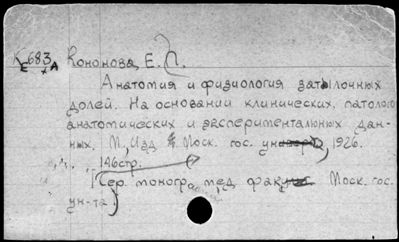 К 683 Кононова, Е. П.
Е х А
Анатомия и физиология затылочных
долей. На основании клинических, патолого
анатомических и экспериментальных дан-
ных. М., Изд. Моск. гос. универ), 1926.
146стр.
[Сер. моногр. мед. фак. Моск. гос.
ун-та]